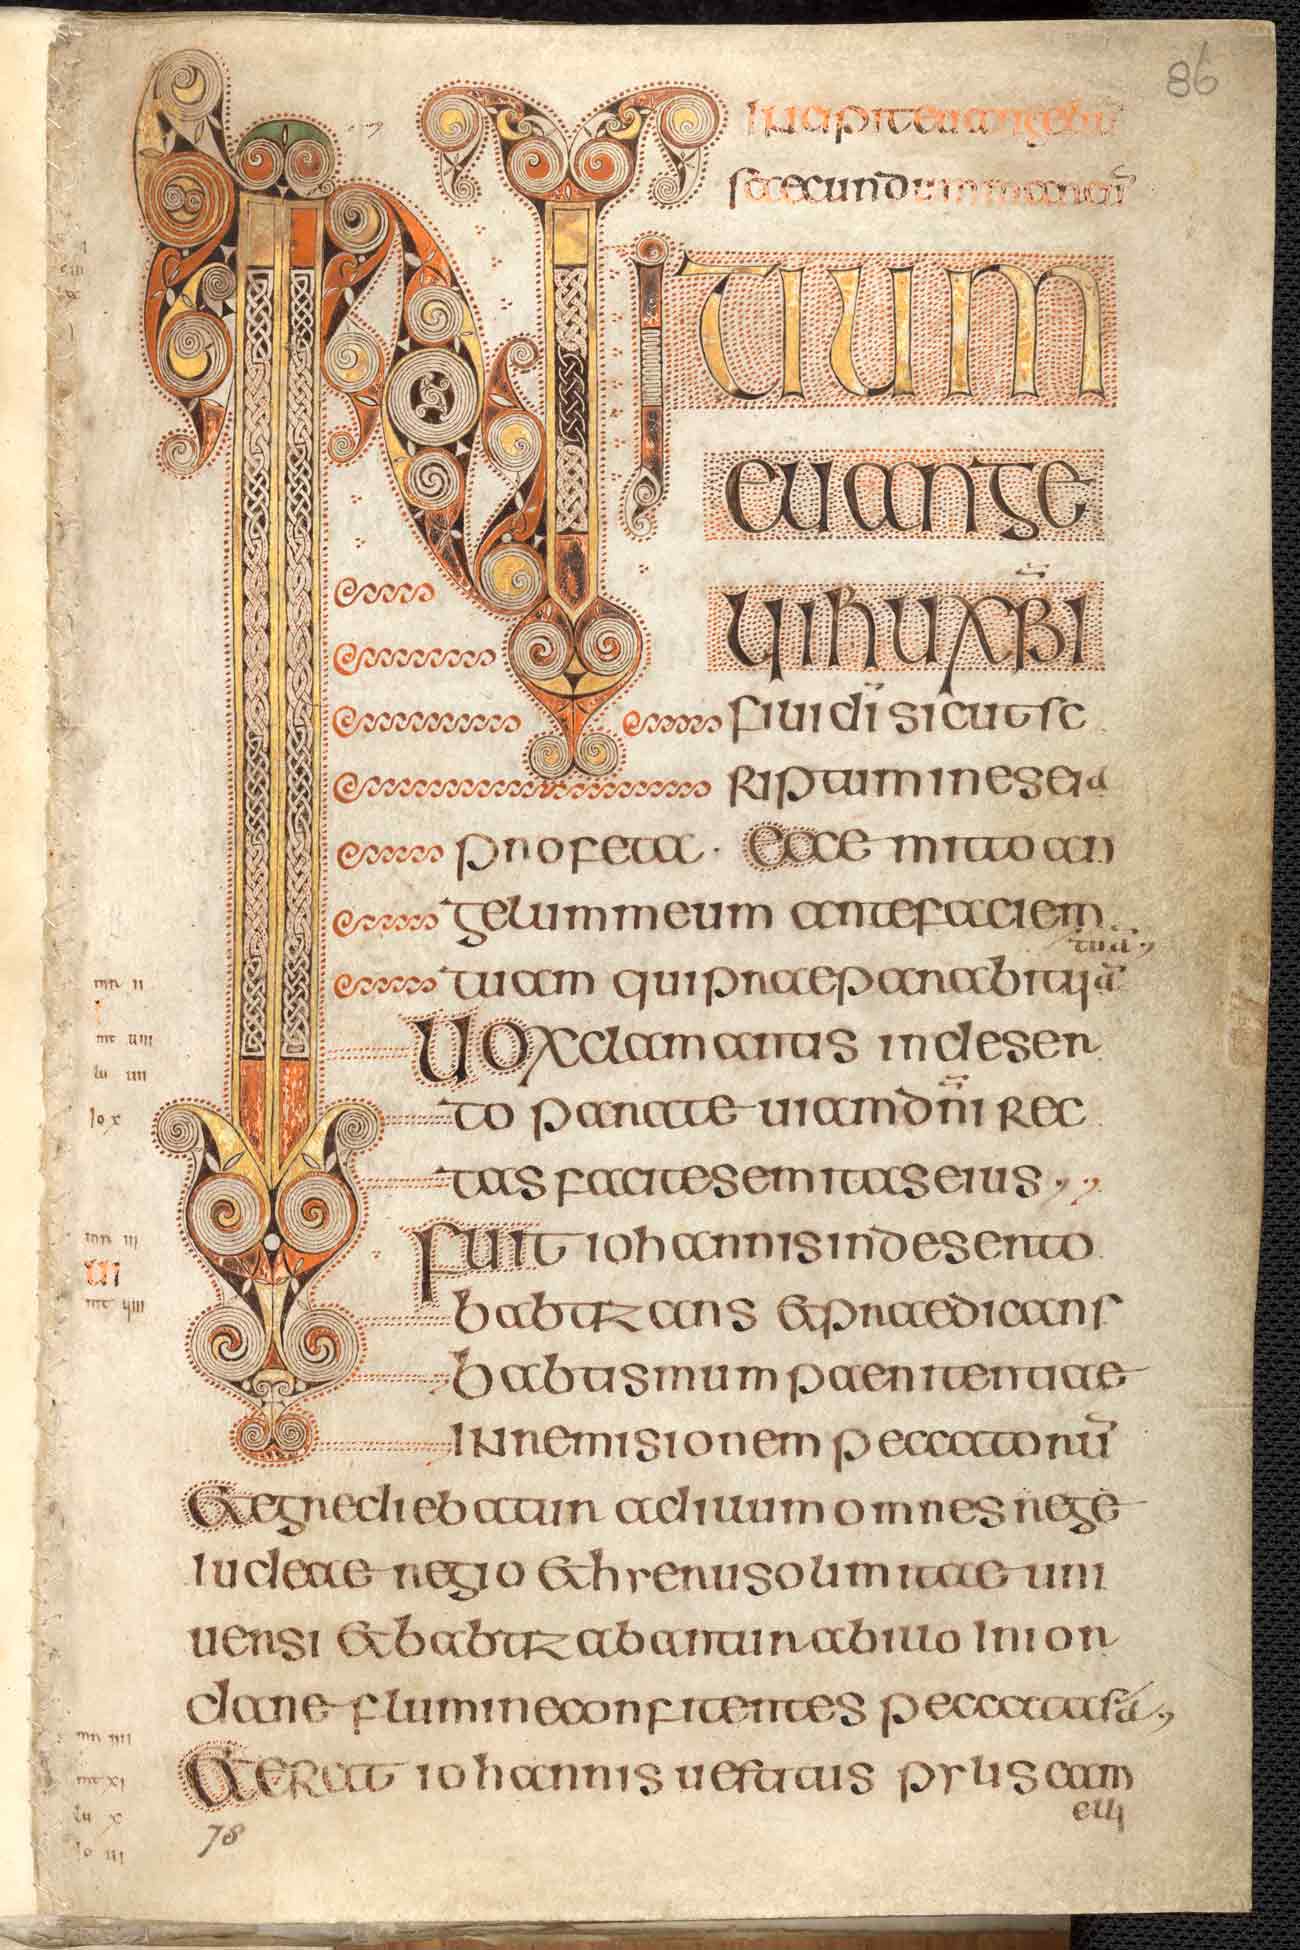 86
Incipit euangeliū
secundum marcū
INITIUM
EUANGE
LII IHU XPI
FILII DI SICUT SC
RIPTUM IN ESEIA
PROFETA · ECCE MITTO AN
GELUM MEUM ANTE FACIEM
TUAM QUI PRAEPARABIT UIĀ
tuā,
UOX CLAMANTIS IN DESER
TO PARATE UIAM DNI REC
TAS FACITE SEMITAS EIUS,,
FUIT IOHANNIS IN DESERTO
BABTIZANS & PRAEDICANS
BABTISMUM PAENITENTIAE
IN REMISIONEM PECCATORŪ
& EGREDIEBATUR AD ILLUM OMNES REGE
IUDEAE REGIO & HYERUSOLIMITAE UNI
UERSI & BABTIZABANTUR AB ILLO IN IOR
DANE FLUMINE CONFITENTES PECCATA SĀ,
& ERAT IOHANNIS UESTITUS PYLIS CAM
ELLI
mr II
mt UIII
lu IIII
Io X
mr III
UI
mr IIII
mt XI
lu X
Io III
78